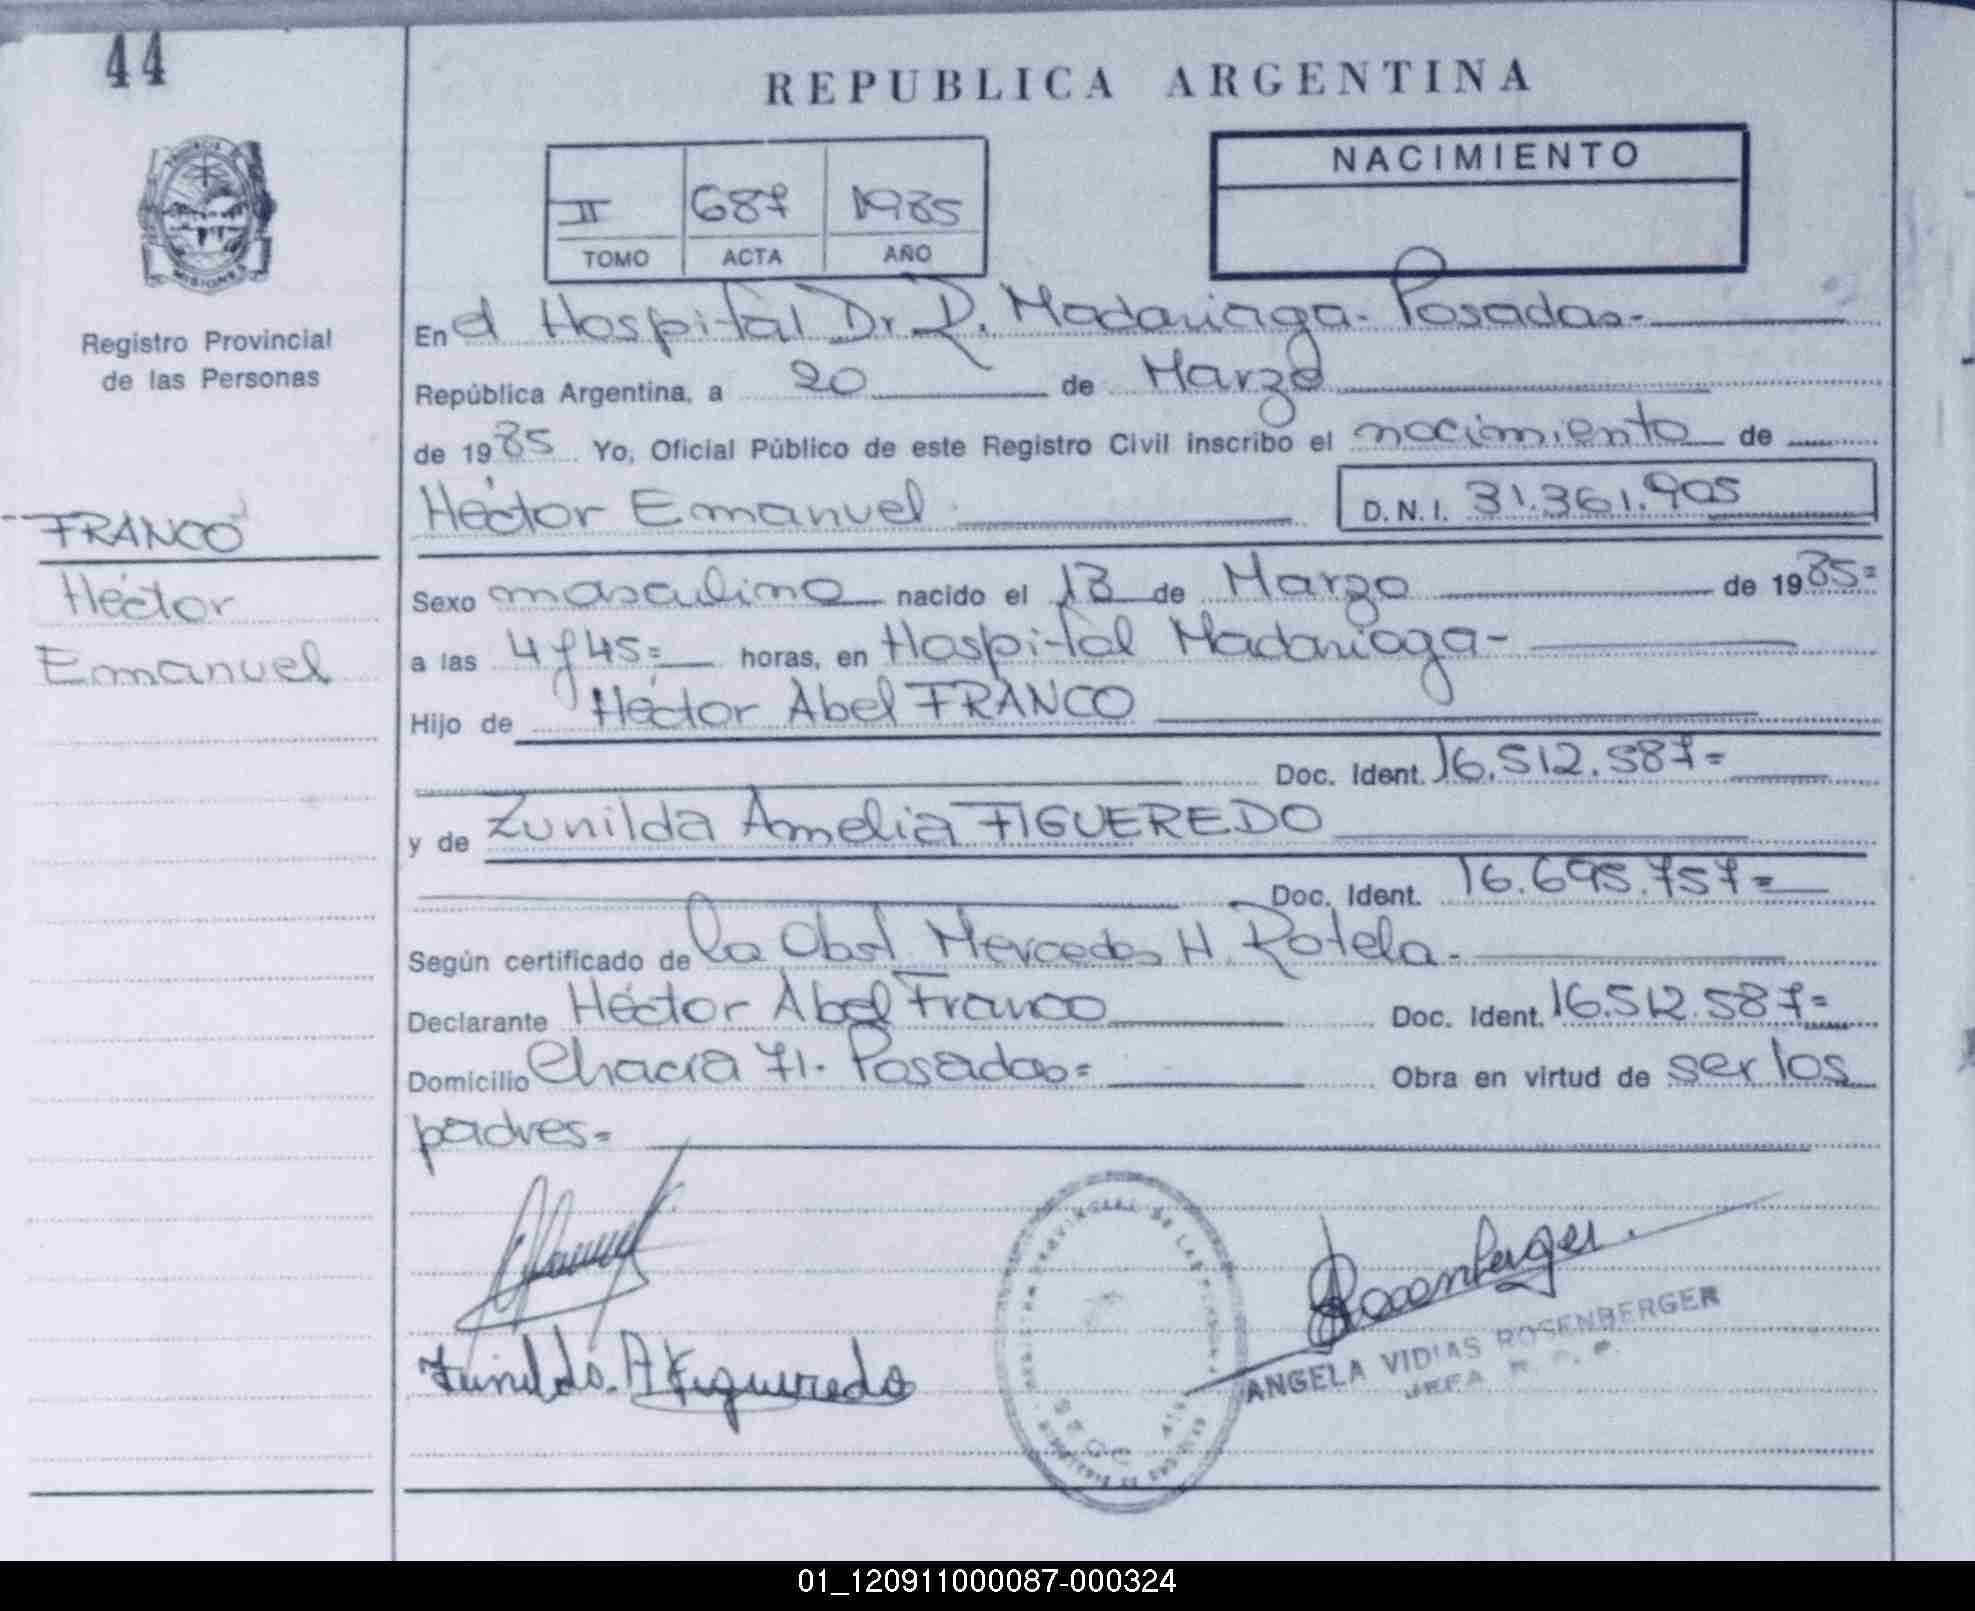 44
REPUBLICA ARGENTINA
PROVINCIA DE
MISIONES
Registro Provincial
de las Personas
II 687 1985
TOMO ACTA AÑO
NACIMIENTO
En el Hospital Dr. R. Madariaga. Posadas.-
República Argentina, a 20 de Marzo
de 1985 Yo, Oficial Público de este Registro Civil inscribo el nacimiento de
Héctor Emanuel D.N.I. 31.361.905
FRANCO
Héctor
Emanuel
Sexo masculino nacido el 13 de Marzo de 1985=
a las 4 y 45= horas, en Hospital Madariaga-
Hijo de Héctor Abel FRANCO
Doc. Ident. 16.512.587=
y de Zunilda Amelia FIGUEREDO
Doc. Ident. 16.695.757=
Según certificado de la Obst. Mercedes H. Rotela.-
Declarante Héctor Abel Franco Doc. Ident. 16.512.587=
Domicilio Chacra 71. Posadas= Obra en virtud de ser los
padres=
Zunilda. A Figueredo
Rosenberger.
PROVINCIAL DE LAS PERSONAS
ANGELA VIDIAS ROSENBERGER
JEFA R. P. P.
01_120911000087-000324